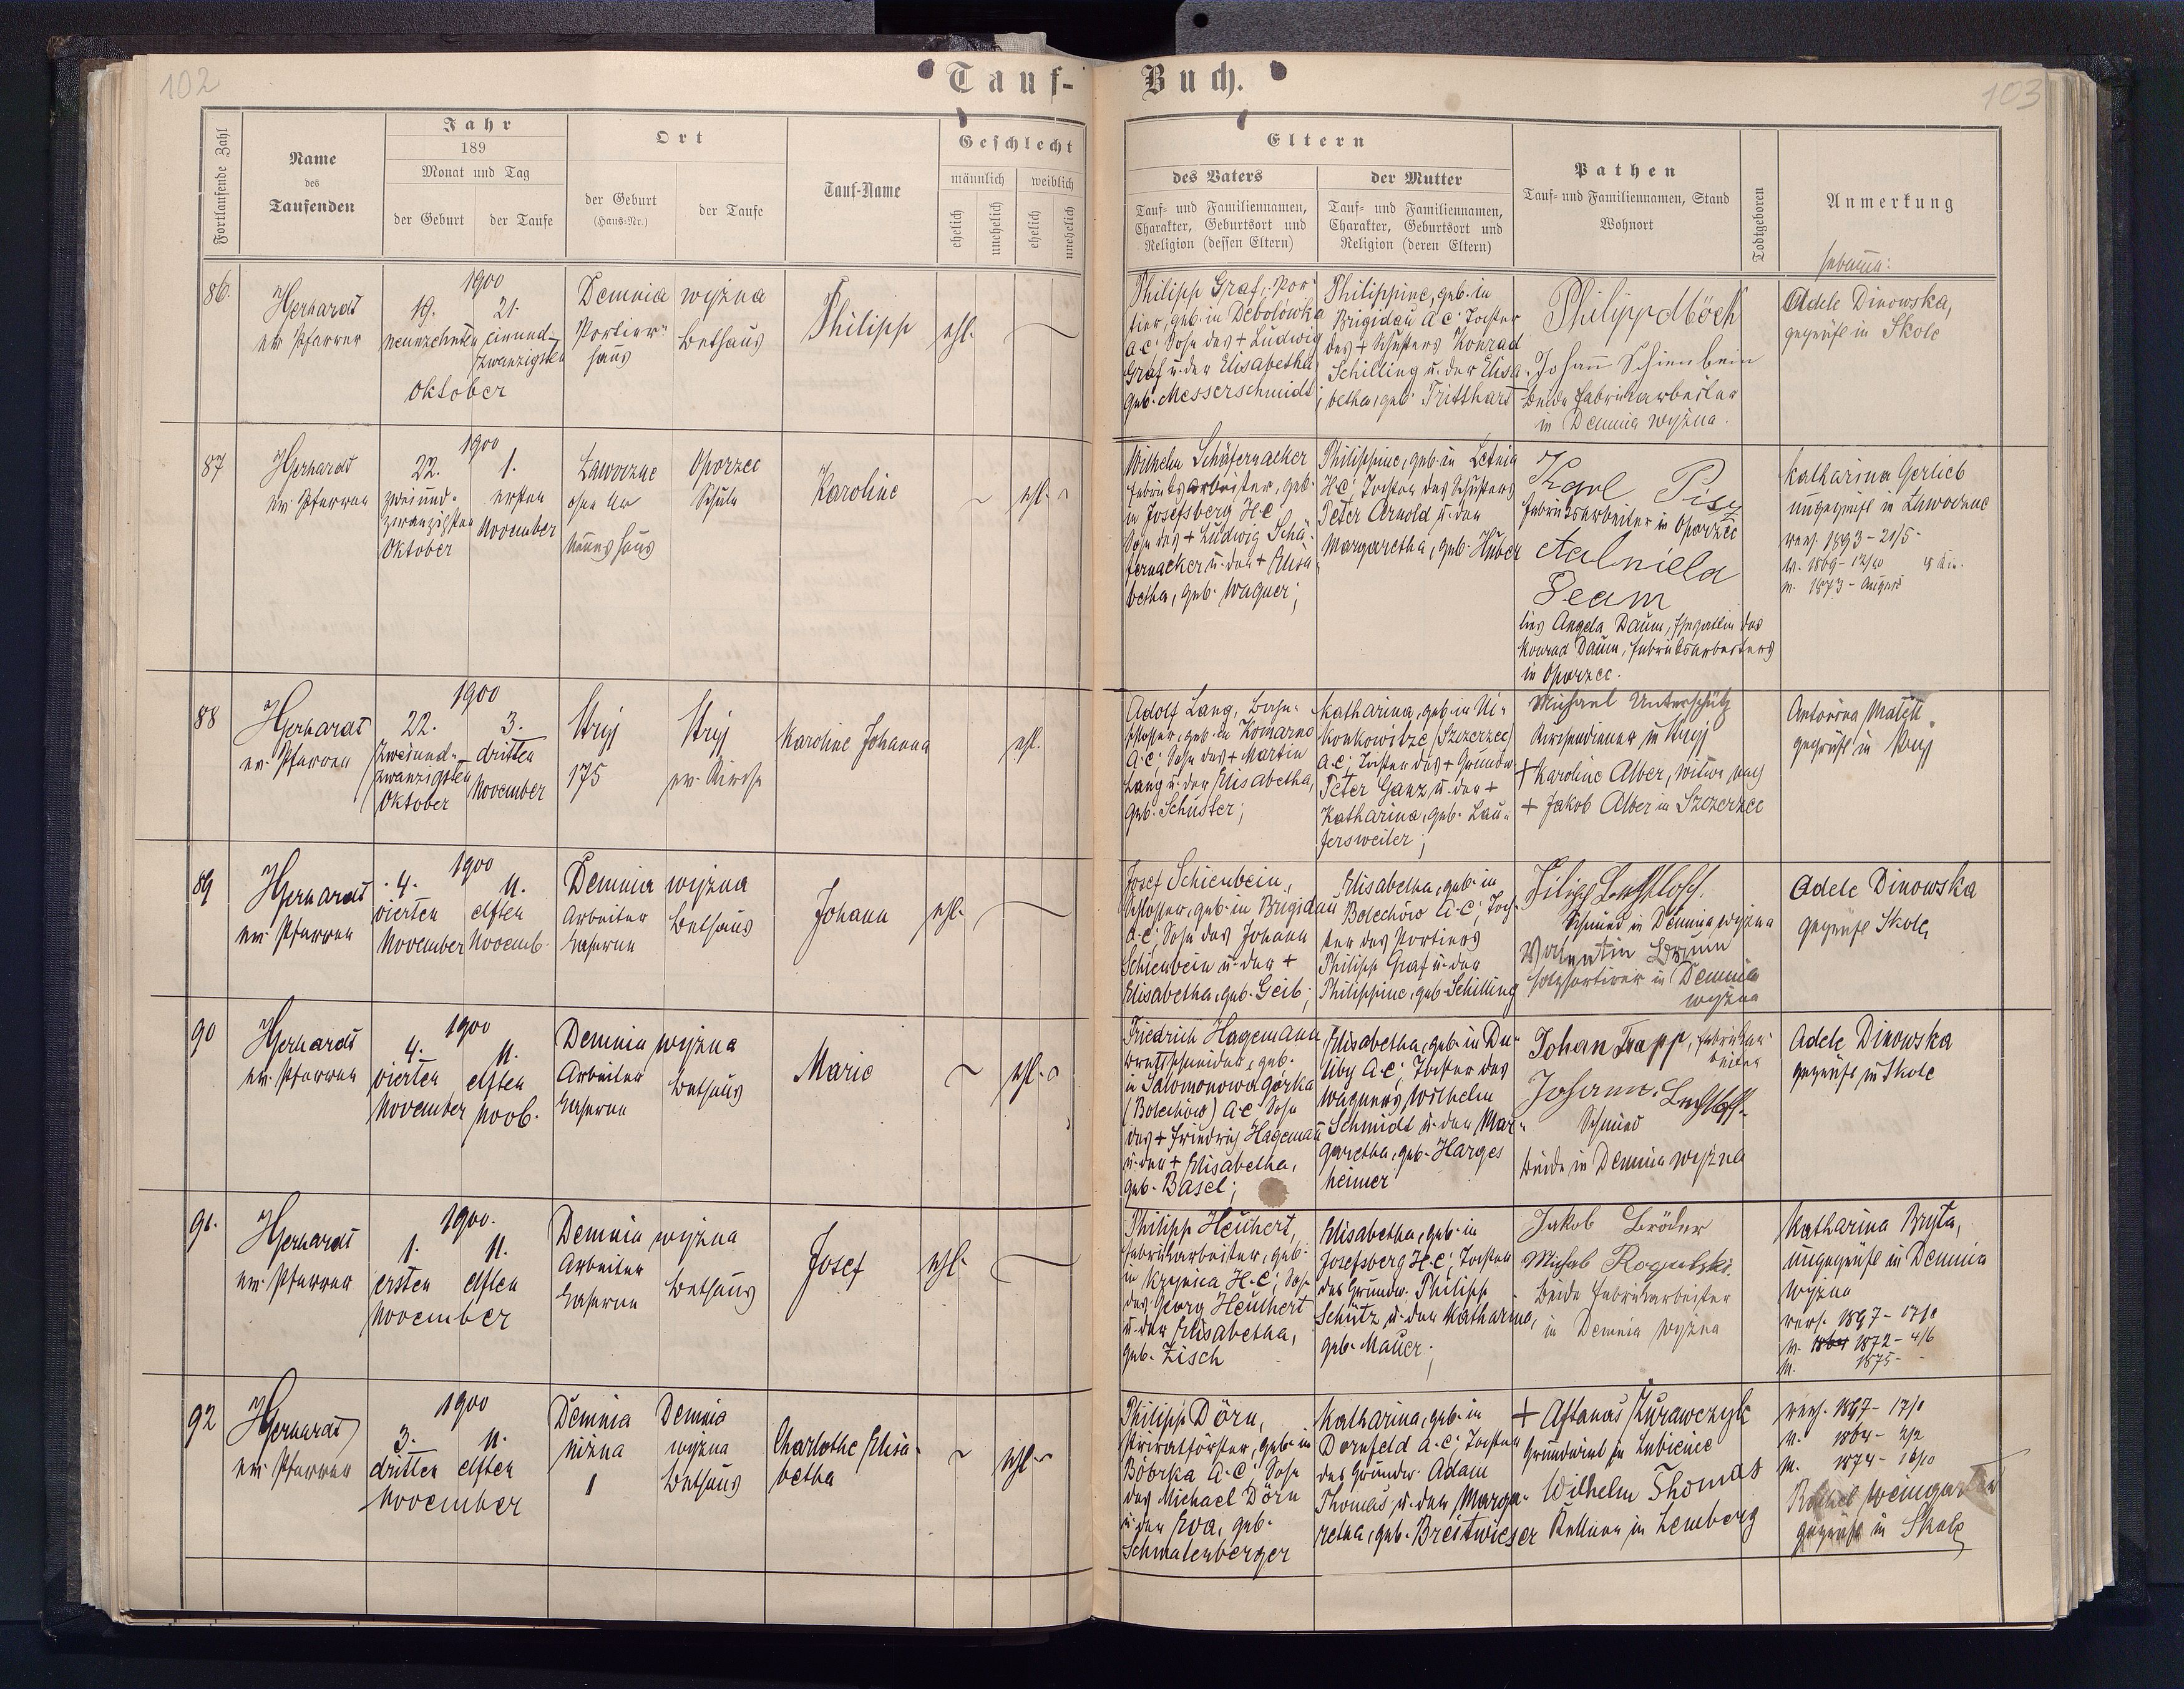 102
Tauf-
Buch.
103
Fortlaufende Zahl
Name
des
Taufenden
Jahr
189
Monat und Tag
der Geburt
der Taufe
Ort
der Geburt
(Haus-Nr.)
der Taufe
Tauf-Name
Geschlecht
männlich
weiblich
ehelich
unehelich
ehelich
unehelich
Eltern
des Vaters
Tauf- und Familiennamen,
Charakter, Geburtsort und
Religion (dessen Eltern)
der Mutter
Tauf- und Familiennamen,
Charakter, Geburtsort und
Religion (deren Eltern)
Pathen
Tauf- und Familiennamen, Stand
Wohnort
Todtgeboren
Anmerkung
Hebamme:
86.
Gerhardt
ev. Pfarrer
1900
19.
neunzehnten
21.
einund-
zwanzigsten
Oktober
Demnia wyżna
Portier-
haus
Bethaus
Philipp
ehl.
Philipp Graf, Por-
tier, geb. in Debolówka
A.C. Sohn des + Ludwig
Graf u. der Elisabetha
geb. Messerschmidt;
Philippine, geb. in
Brigidau A.C. Tochter
des + Schusters Konrad
Schilling u. der Elisa-
betha, geb. Tritthart
Philipp Möch
Johann Schienbein
beide Fabrikarbeiter
in Demnia wyżna.
Adele Dinowska,
geprüft in Skole
87
Gerhardt
ev. Pfarrer
1900
22.
zweiund-
zwanzigsten
Oktober
1.
ersten
November
Ławoczne
Oporzec
Schule
Karoline
ehl.
Wilhelm Schäfernacker
Fabriksarbeiter, geb.
in Josefsberg H.C.
Sohn des + Ludwig Schä-
fernacker u. der + Elisa-
betha, geb. Wagner;
Philippine, geb. in Letnia
H.C; Tochter des Schusters
Peter Arnold u. der
Margaretha, geb. Huber
Karl Pisz
Fabriksarbeiter in Oporzec
lies Angela Daum, Ehegattin des
Konrad Daum, Fabriksarbeiters
in Oporzec.
Katharina Gerlieb
ungeprüft in Ławoczne
verh. 1893 - 21/5 -
v. 1869 - 12/10
m. 1873 - August
88
Gerhardt
ev. Pfarrer
1900
22.
zweiund-
zwanzigsten
Oktober
3.
dritten
November
Stryj
175
Stryj
ev. Kirche
Karoline Johanna
ehl.
Adolf Lang, Bahn-
schlosser, geb. in Komarno
A.C; Sohn des + Martin
Lang u. der Elisabetha,
geb. Schuster;
Katharina, geb. in Ni-
konkowitze (Szczerzec)
A.C; Tochter des + Grundw.
Peter Ganz u. der +
Katharina, geb. Lau-
fersweiler;
Michael Unterschütz
Kirchendiener in Stryj
+ Karoline Alber, Witwe nach
+ Jakob Alber in Szczerzec
Antonina Matell
geprüft in Stryj
89
Gerhardt
ev. Pfarrer
1900
4.
vierten
November
11.
elften
Novemb.
Demnia wyżna
Arbeiter
Kaserne
Bethaus
Johann
ehl.
Josef Schienbein,
Schlosser, geb. in Brigidau
A.C; Sohn des Johann
Schienbein u. der +
Elisabetha, geb. Geib;
Elisabetha, geb. in
Bolechów A.C; Toch-
ter des Portiers
Philipp Graf u. der
Philippine, geb. Schilling
Schmied in Demnia wyżna
in Demnia
wyżna
Adele Dinowska
geprüft Skole
90
Gerhardt
ev. Pfarrer
1900
4.
vierten
November
11.
elften
Novb.
Demnia wyżna
Arbeiter
Kaserne
Bethaus
Marie
ehl.
Friedrich Hagemann,
Brettschneider, geb.
in Salomonowa górka
(Bolechów) A.C. Sohn
des + Friedrich Hagemann
u. der + Elisabetha,
geb. Basel;
Elisabetha, geb. in Du-
liby A.C; Tochter des
Wagners Wilhelm
Schmidt u. der Mar-
garetha, geb. Harges
heimer
Johan Trapp, Fabrikar-
beiter
Schmied
beide in Demnia wyżna
Adele Dinowska
geprüft in Skole
91.
Gerhardt
ev. Pfarrer
1900.
1.
ersten
11.
elften
November
Demnia wyżna
Arbeiter
Kaserne
Bethaus
Josef
ehl.
Philipp Heuchert,
Fabrikarbeiter, geb.
in Krynica H.C; Sohn
des Georg Heuchert
u. der Elisabetha,
geb. Zisch
Elisabetha, geb. in
Josefsberg H.C; Tochter
des Grundw. Philipp
Schütz u. der Katharina,
geb. Mauer;
Jakob Bröder
Michał Rogulski
beide Fabrikarbeiter
in Demnia wyżna
Katharina Bryta,
ungeprüft in Demnia
wyżna
verh. 1897 - 17/8
v. 1872 - 4/6
m. 1875 -
92
Gerhardt
ev. Pfarrer
1900
3.
dritten
11.
elften
November
Demnia
niżna
1
Demnia
wyżna
Bethaus
Charlotte Elisa-
betha
ehl.
Philipp Dörn,
Privatförster, geb. in
Bóbrka A.C; Sohn
des Michael Dörn
u. der Eva, geb.
Schmalenberger
Katharina, geb. in
Dornfeld A.C; Tochter
des Grundw. Adam
Thomas u. der Marga-
retha, geb. Breitwieser
+ Aftanas Żurawczyk
Grundwirt in Lubience
Wilhelm Thomas
Kellner in Lemberg
verh. 1897 - 17/8
v. 1864 - 2/2
m. 1874 - 16/10
geprüft in Skole